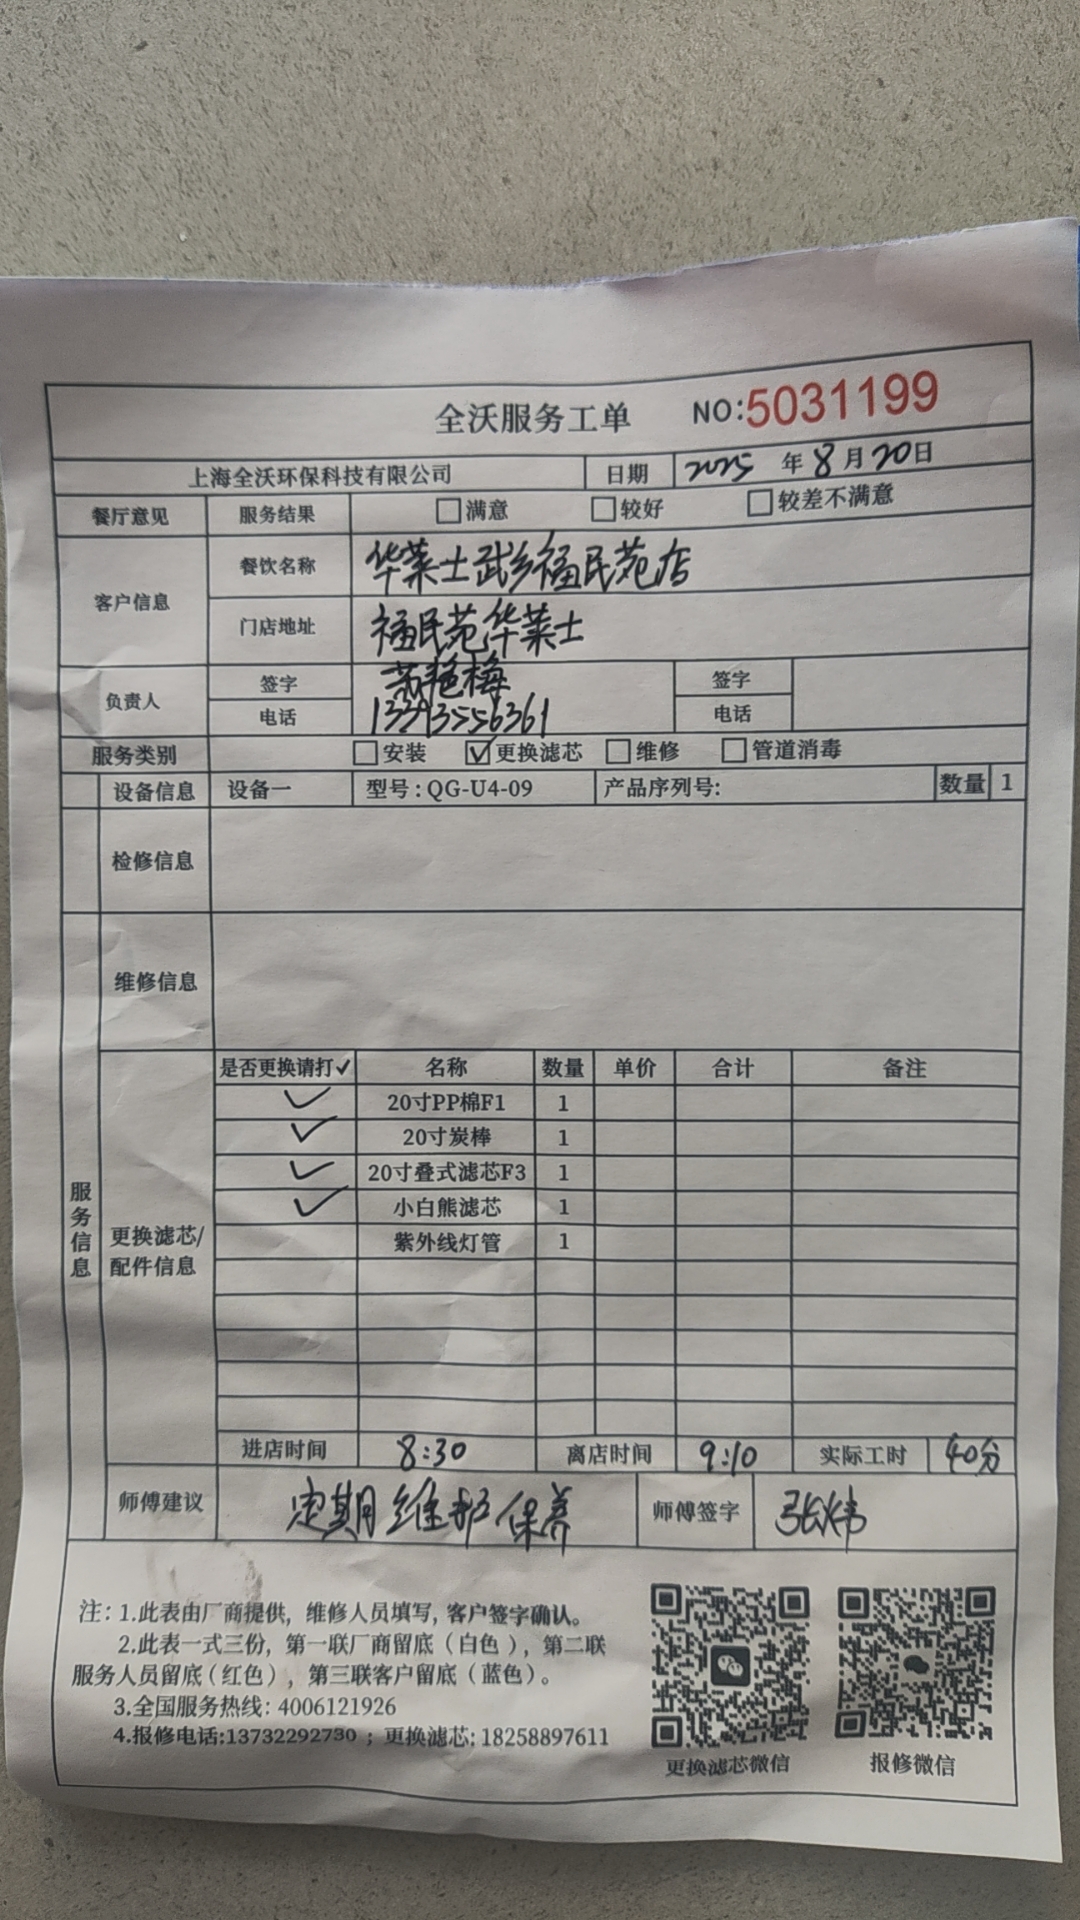 全沃服务工单 NO:5031199
上海全沃环保科技有限公司 日期 2025年8月20日
餐厅意见 服务结果 满意 较好 较差不满意
客户信息 餐饮名称 华莱士武乡福民苑店
门店地址 福民苑华莱士
负责人 签字 苏艳梅 签字
电话 13393556361 电话
服务类别 安装 ✓更换滤芯 维修 管道消毒
设备信息 设备一 型号:QG-U4-09 产品序列号: 数量 1
检修信息
维修信息
服务信息
更换滤芯/配件信息
是否更换请打✓ 名称 数量 单价 合计 备注
✓ 20寸PP棉F1 1
✓ 20寸炭棒 1
✓ 20寸叠式滤芯F3 1
✓ 小白熊滤芯 1
紫外线灯管 1
进店时间 8:30 离店时间 9:10 实际工时 40分
师傅建议 定期维护保养 师傅签字 张炜
注:1.此表由厂商提供,维修人员填写,客户签字确认。
2.此表一式三份,第一联厂商留底(白色),第二联
服务人员留底(红色),第三联客户留底(蓝色)。
3.全国服务热线:4006121926
4.报修电话:13732292730;更换滤芯:18258897611
更换滤芯微信 报修微信